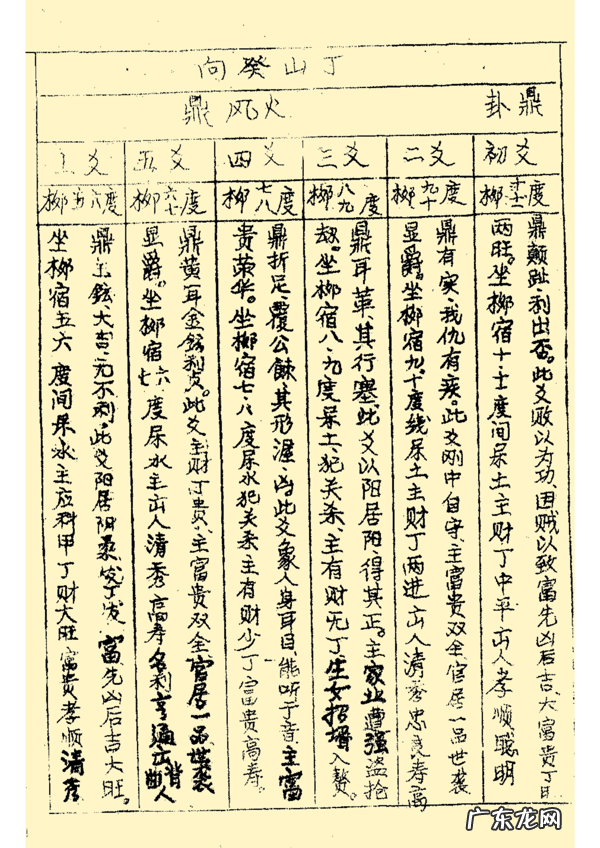 丁山癸向
鼎卦
火风鼎
初爻
柳十十一度
鼎颠趾利出否。此爻败以为功、因贼以致富先凶后吉、大富贵丁
两旺。坐柳宿十、十一度间呆土主财丁中平出人孝顺聪明
二爻
柳九十度
鼎有实、我仇有疾。此爻刚中自守、主富贵双全官居一品世袭
显爵。坐柳宿九、十度线呆土主财丁两进出人清秀忠良寿高
三爻
柳八九度
鼎耳革、其行塞此爻以阳居阳、得其正。主家业遭强盗抢
劫。坐柳宿八、九度呆土、犯关杀、主有财无丁生女招婿入赘。
四爻
柳七八度
鼎折足、覆公餗、其形渥、凶此爻象人身耳目、能听于音主富
贵荣华。坐柳宿七、八度尿水犯关杀主有财少丁富贵高寿。
五爻
柳六七度
鼎黄耳金铉利贞。此爻主财丁贵、主富贵双全官居一品世袭
显爵。坐柳宿六七度尿水主出人清秀高寿名利亨通出人
上爻
柳五六度
鼎玉铉、大吉、无不利。此爻阳居阴柔发丁发富先凶后吉大旺。
坐柳宿五六度间呆水主应科甲丁财大旺富贵孝顺清秀
广东龙网